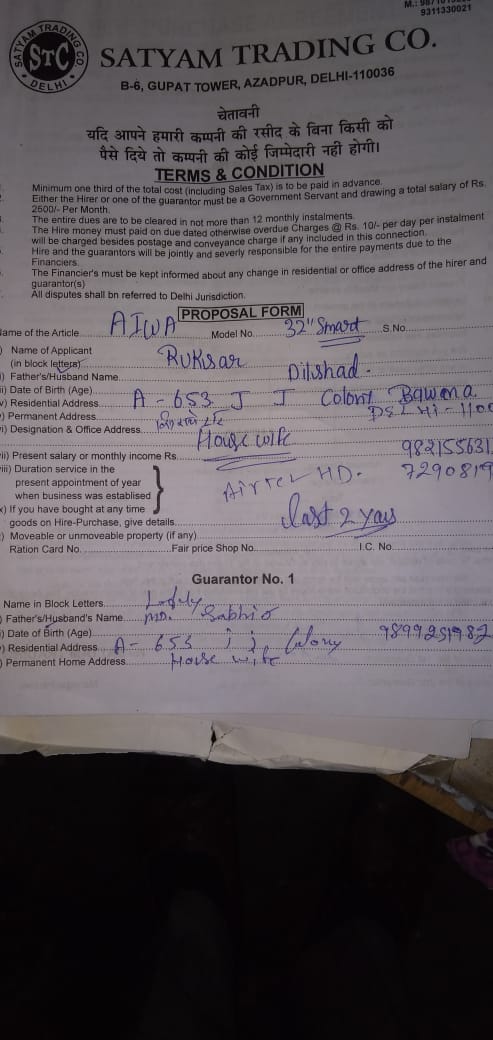 9311330021
SATYAM TRADING CO
STC
DELHI
SATYAM TRADING CO.
B-6, GUPAT TOWER, AZADPUR, DELHI-110036
चेतावनी
यदि आपने हमारी कम्पनी की रसीद के बिना किसी को
पैसे दिये तो कम्पनी की कोई जिम्मेदारी नही होगी।
TERMS & CONDITION
Minimum one third of the total cost (including Sales Tax) is to be paid in advance.
Either the Hirer or one of the guarantor must be a Government Servant and drawing a total salary of Rs.
2500/- Per Month.
The entire dues are to be cleared in not more than 12 monthly instalments.
The Hire money must paid on due dated otherwise overdue Charges @ Rs. 10/- per day per instalment
will be charged besides postage and conveyance charge if any included in this connection.
Hire and the guarantors will be jointly and severly responsible for the entire payments due to the
Financiers.
The Financier's must be kept informed about any change in residential or office address of the hirer and
guarantor(s)
All disputes shall bn referred to Delhi Jurisdiction.
PROPOSAL FORM
Name of the Article AIWA Model No. 32" Smart S.No.
Name of Applicant RUKSAR
(in block letters)
Father's/Husband Name Dilshad
Date of Birth (Age)
Residential Address A-653 J J Colony Bawana
Permanent Address DELHI-110
Designation & Office Address House wife
Present salary or monthly income Rs. 982155631
Duration service in the AirTEL HD. 7290819
present appointment of year
when business was establised
If you have bought at any time
goods on Hire-Purchase, give details last 2 yays
Moveable or unmoveable property (if any)
Ration Card No. Fair price Shop No. I.C. No.
Guarantor No. 1
Name in Block Letters
Father's/Husband's Name MD.
Date of Birth (Age) 9899251982
Residential Address A-653 j j. Colony
Permanent Home Address House wife